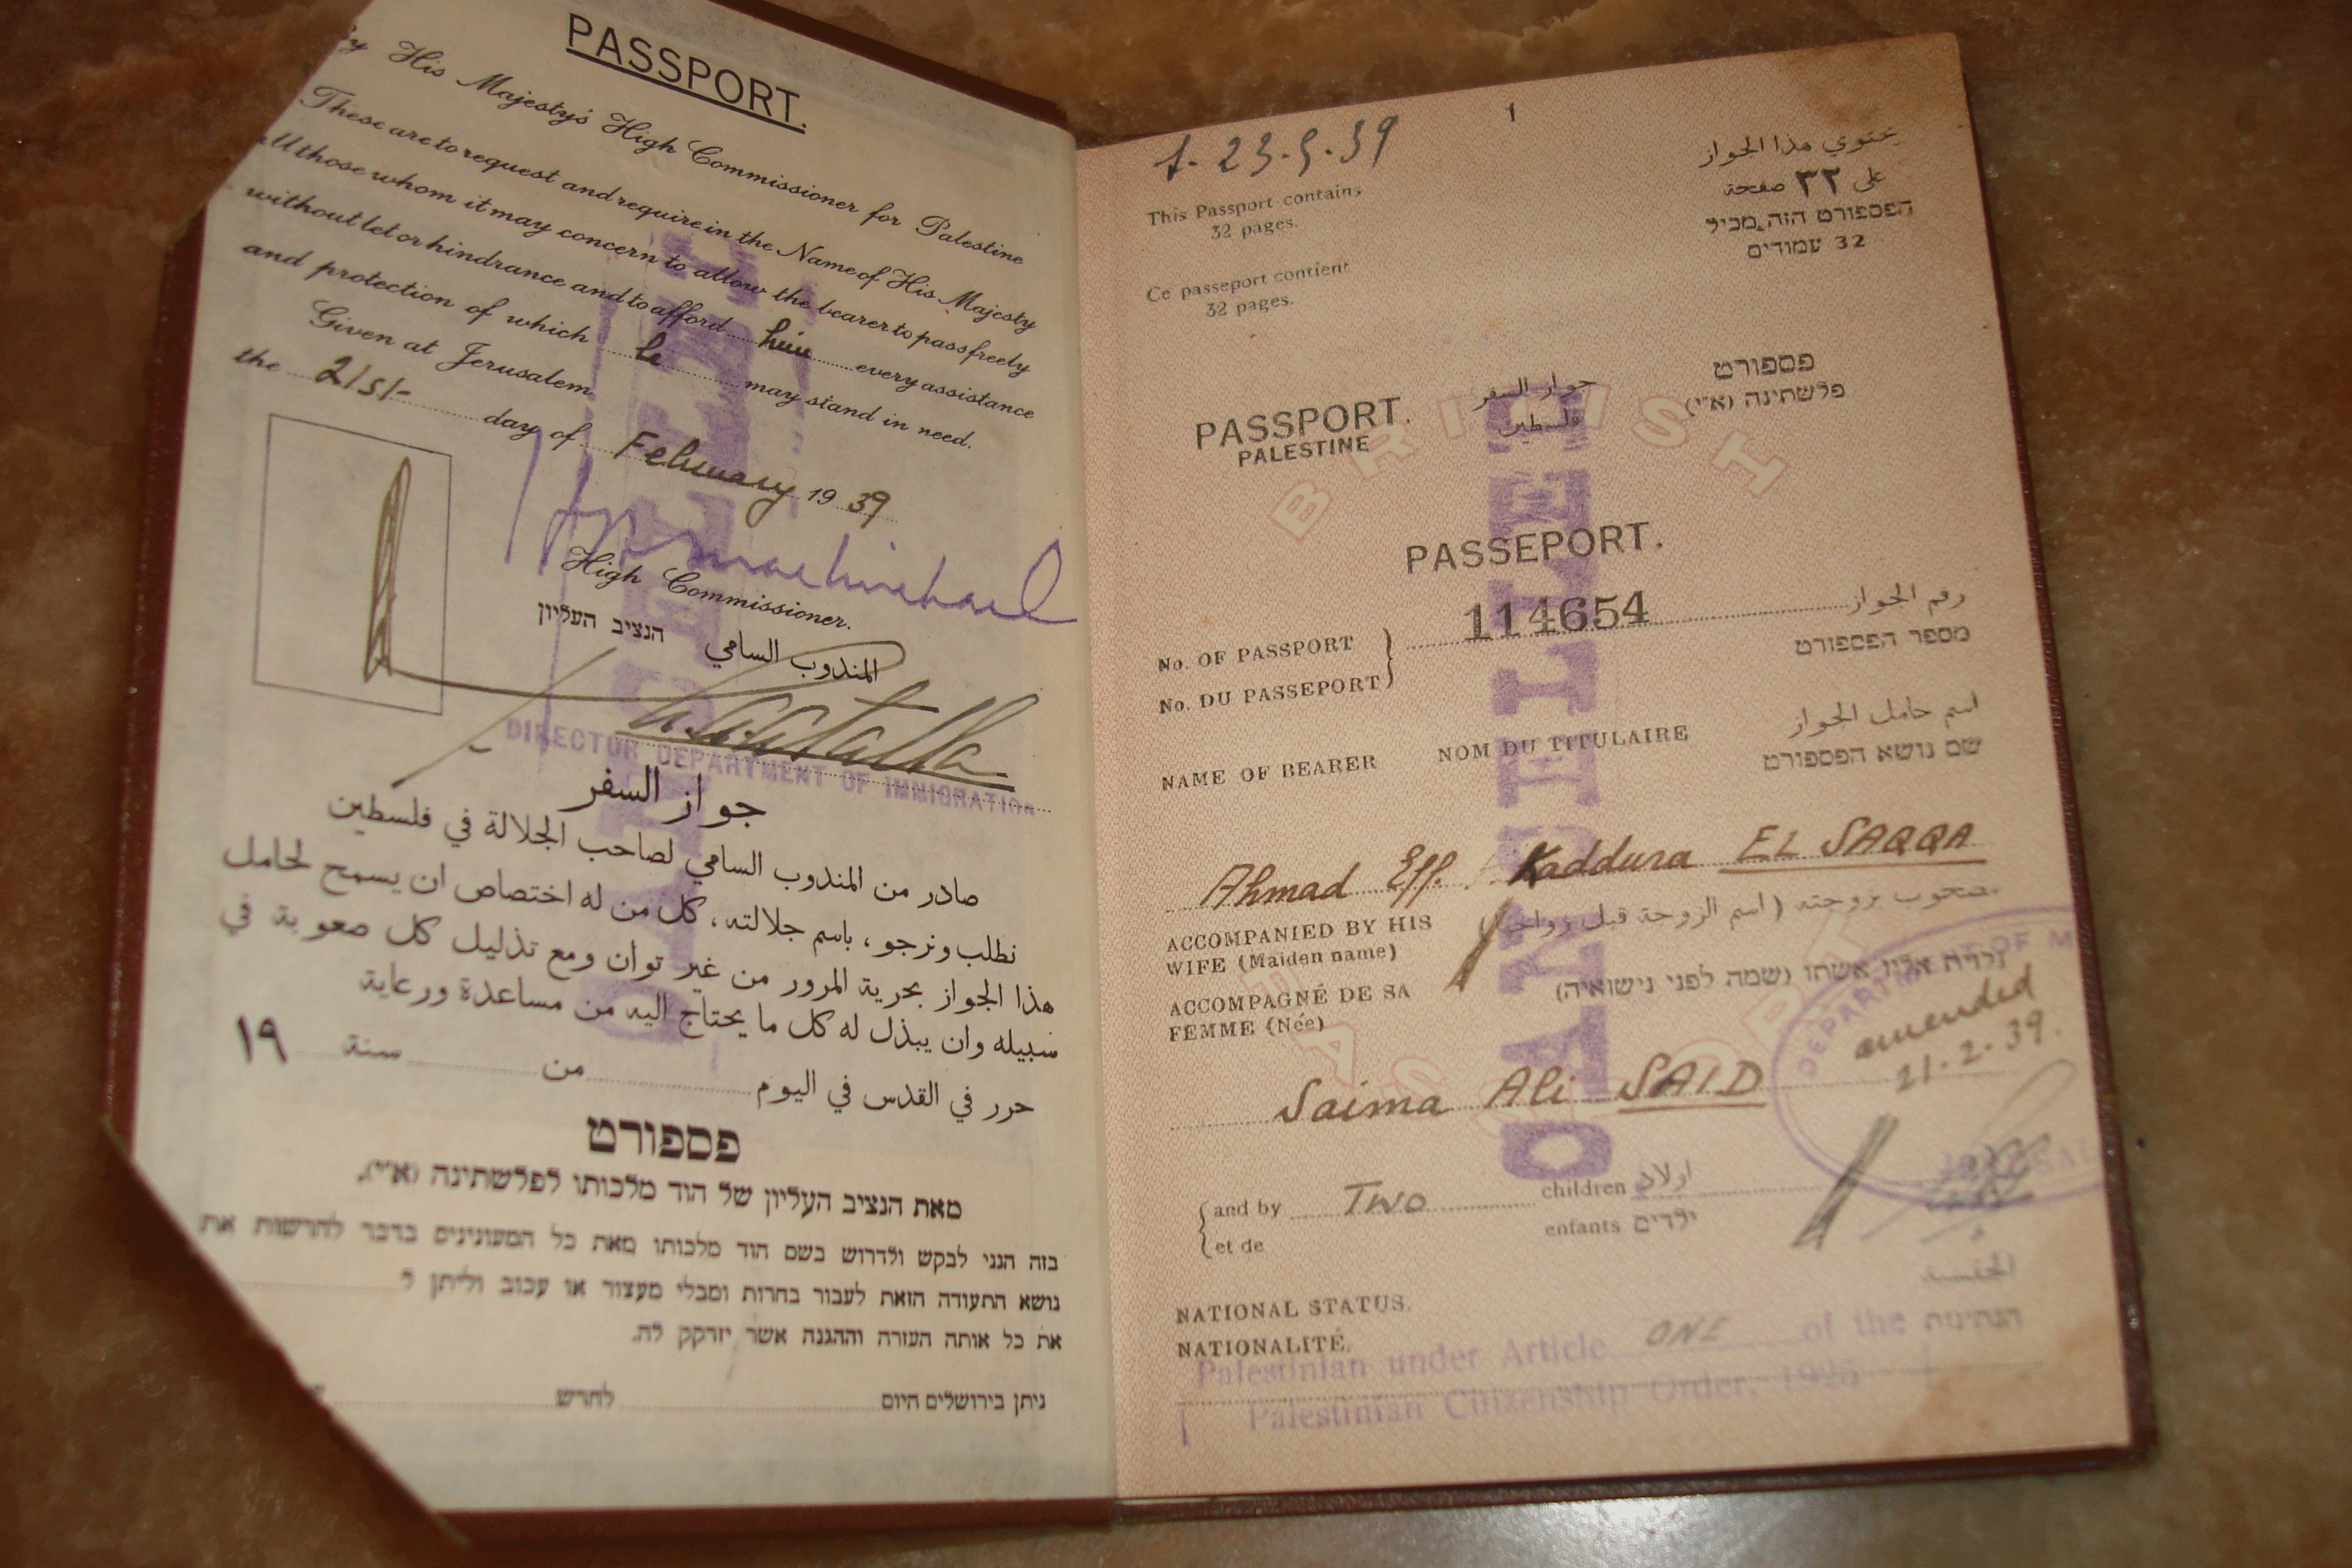 PASSPORT.
By His Majesty's High Commissioner for Palestine
These are to request and require in the Name of His Majesty
all those whom it may concern to allow the bearer to pass freely
without let or hindrance and to afford him every assistance
and protection of which he may stand in need.
Given at Jerusalem
the 21st day of February 1939
High Commissioner.
הנציב העליון المندوب السامي
DIRECTOR DEPARTMENT OF IMMIGRATION
جواز السفر
صادر من المندوب السامي لصاحب الجلالة في فلسطين
نطلب ونرجو ، باسم جلالته ، كل من له اختصاص ان يسمح لحامل
هذا الجواز بحرية المرور من غير توان ومع تذليل كل صعوبة في
سبيله وان يبذل له كل ما يحتاج اليه من مساعدة ورعاية
حرر في القدس في اليوم من سنة ١٩
פספורט
מאת הנציב העליון של הוד מלכותו לפלשתינה (א״י).
בזה הנני לבקש ולדרוש בשם הוד מלכותו מאת כל המעונינים בדבר להרשות את
נושא התעודה הזאת לעבור בחרות ומבלי מעצור או עכוב וליתן ל
את כל אותה העזרה וההגנה אשר יזדקק לה.
ניתן בירושלים היום לחדש
1
23.5.39
This Passport contains
32 pages.
Ce passeport contient
32 pages.
يحتوي هذا الجواز
على ٣٢ صفحة
הפספורט הזה מכיל
32 עמודים
PASSPORT.
PALESTINE
جواز السفر
فلسطين
פספורט
פלשתינה (א״י)
BRITISH
PASSPORT
PASSEPORT.
No. OF PASSPORT
No. DU PASSEPORT
114654
رقم الجواز
מספר הפספורט
NAME OF BEARER NOM DU TITULAIRE
اسم حامل الجواز
שם נושא הפספורט
Ahmad Eff. Kaddura EL SAQQA
ACCOMPANIED BY HIS
WIFE (Maiden name)
مصحوب بزوجته (اسم الزوجة قبل زواجها)
ACCOMPAGNÉ DE SA
FEMME (Née)
אשתו (שמה לפני נישואיה)
DEPARTMENT OF
amended
21.2.39.
Saima Ali SAID
and by TWO children اولاد
et de enfants ילדים
NATIONAL STATUS.
NATIONALITÉ.
الجنسية
הנתינות
Palestinian under Article ONE of the
Palestinian Citizenship Order, 1925